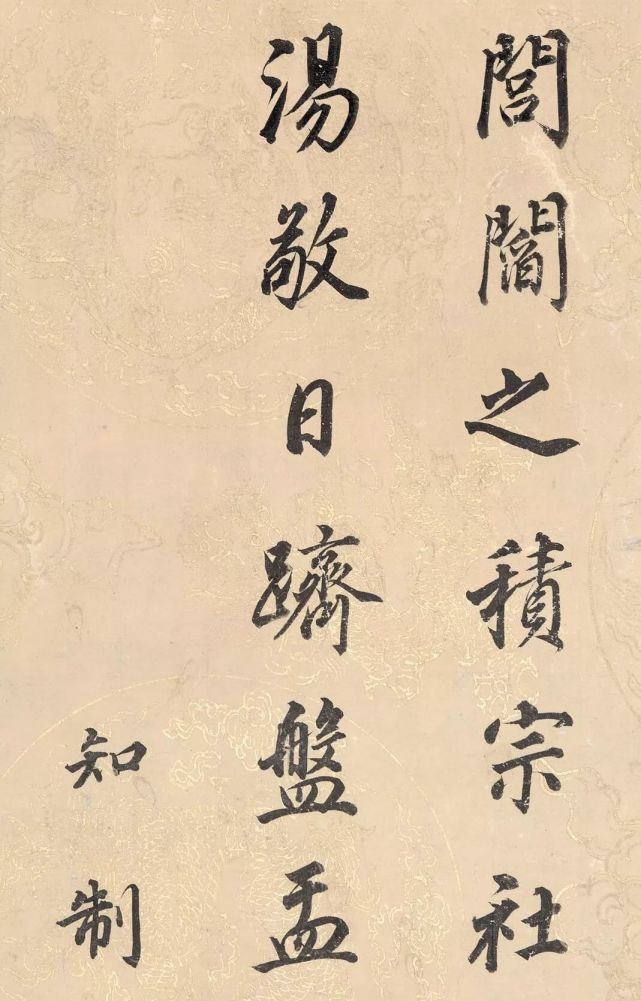 閭閻之積宗社
湯敬日躋盤盂
知制